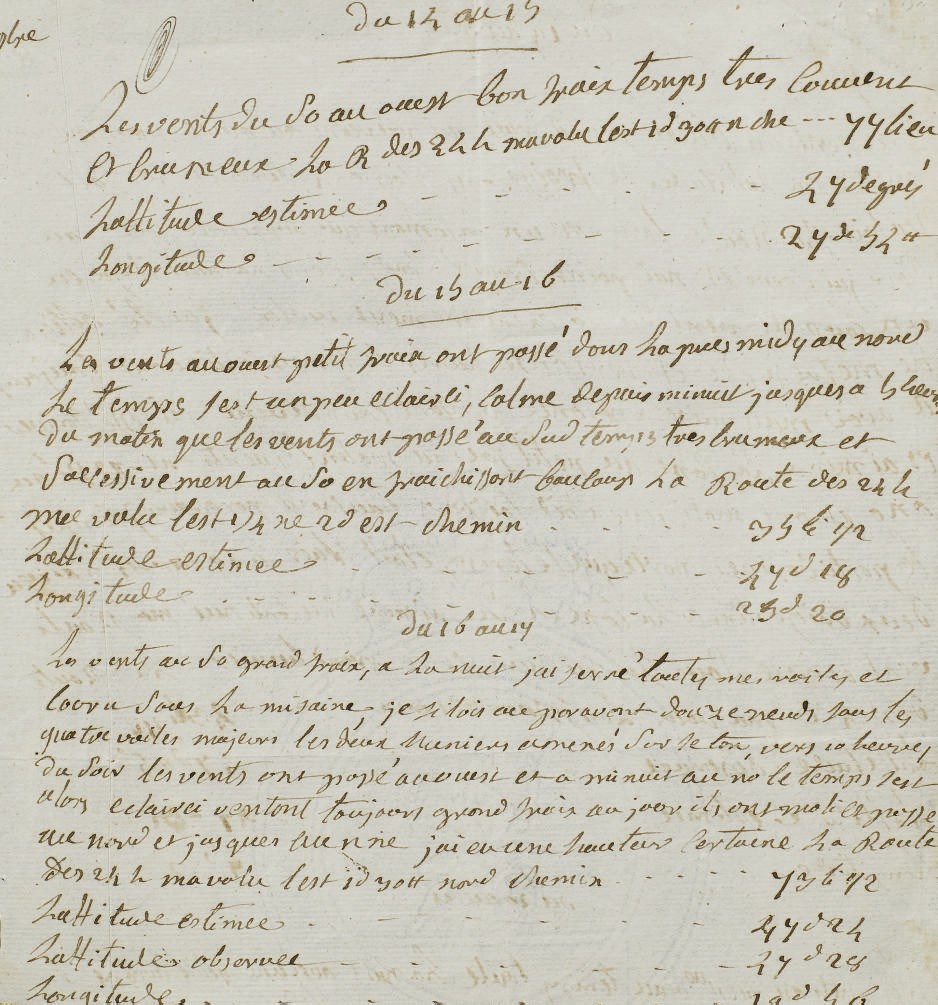 du 14 au 15
bre
Les vents du So au ouest bon fraix temps tres Couvert
Et brumeux La R des 24 h ma valu lest 1d 30 tt n che --- 77 lieu
Lattitude estimee - - - - 47 degrés
Longitude - - - - 27 de 54 tt
du 15 au 16
Les vents au ouest petit fraix ont passé dans Lapres midy au nord
Le temps sest un peu eclairci, Calme depuis minuit jusques a 5 heur
du matin que les vents ont passé au Sud temps tres brumeux et
Successivement au So en fraichissant baucoup La Route des 24 h
mee valu lest 1/4 ne 2d est Chemin - - - 35 li 92
Lattitude estimee - - - - 47 d 18
Longitude - - - - 25 d 20
du 16 au 17
Les vents au So grand fraix, a La nuit jai serré toutes mes voiles et
Couru Sous La misaine, je filois au paravant douze neuds sous les
quatre voiles majeurs les deux huniers amenés Sur le ton, vers 10 heures
du Soir les vents ont passé au ouest et a minuit au no le temps sest
alors eclairci ventant toujours grand fraix au jour ils ont moli et passe
au nord et jusques au nne jai eu une hauteur Certaine La Route
Des 24 h ma valu lest 1d 30 tt nord Chemin - - - - 73 li 92
Lattitude estimee - - - - 47 d 24
Lattitude observee - - - - 47 d 28
Longitude